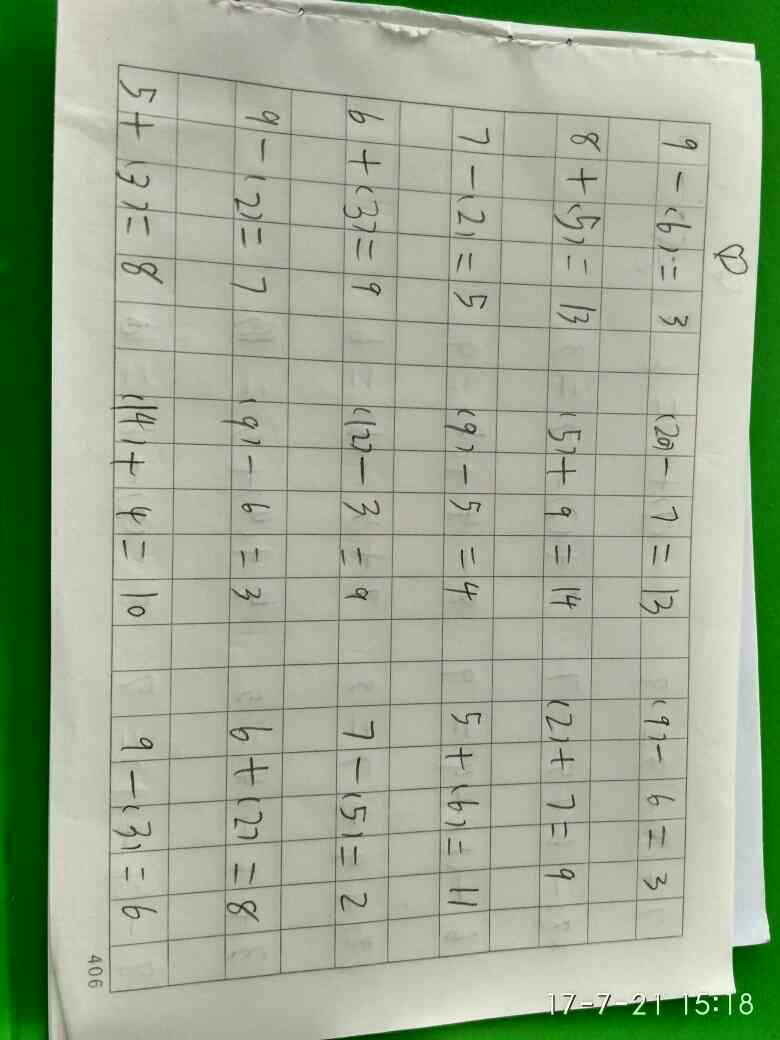 9-(6)=3 (20)-7=13 (9)-6=3
8+(5)=13 (5)+9=14 (2)+7=9
7-(2)=5 (9)-5=4 5+(6)=11
6+(3)=9 (12)-3=9 7-(5)=2
9-(2)=7 (9)-6=3 6+(2)=8
5+(3)=8 (14)+4=10 9-(3)=6
406
17-7-21 15:18